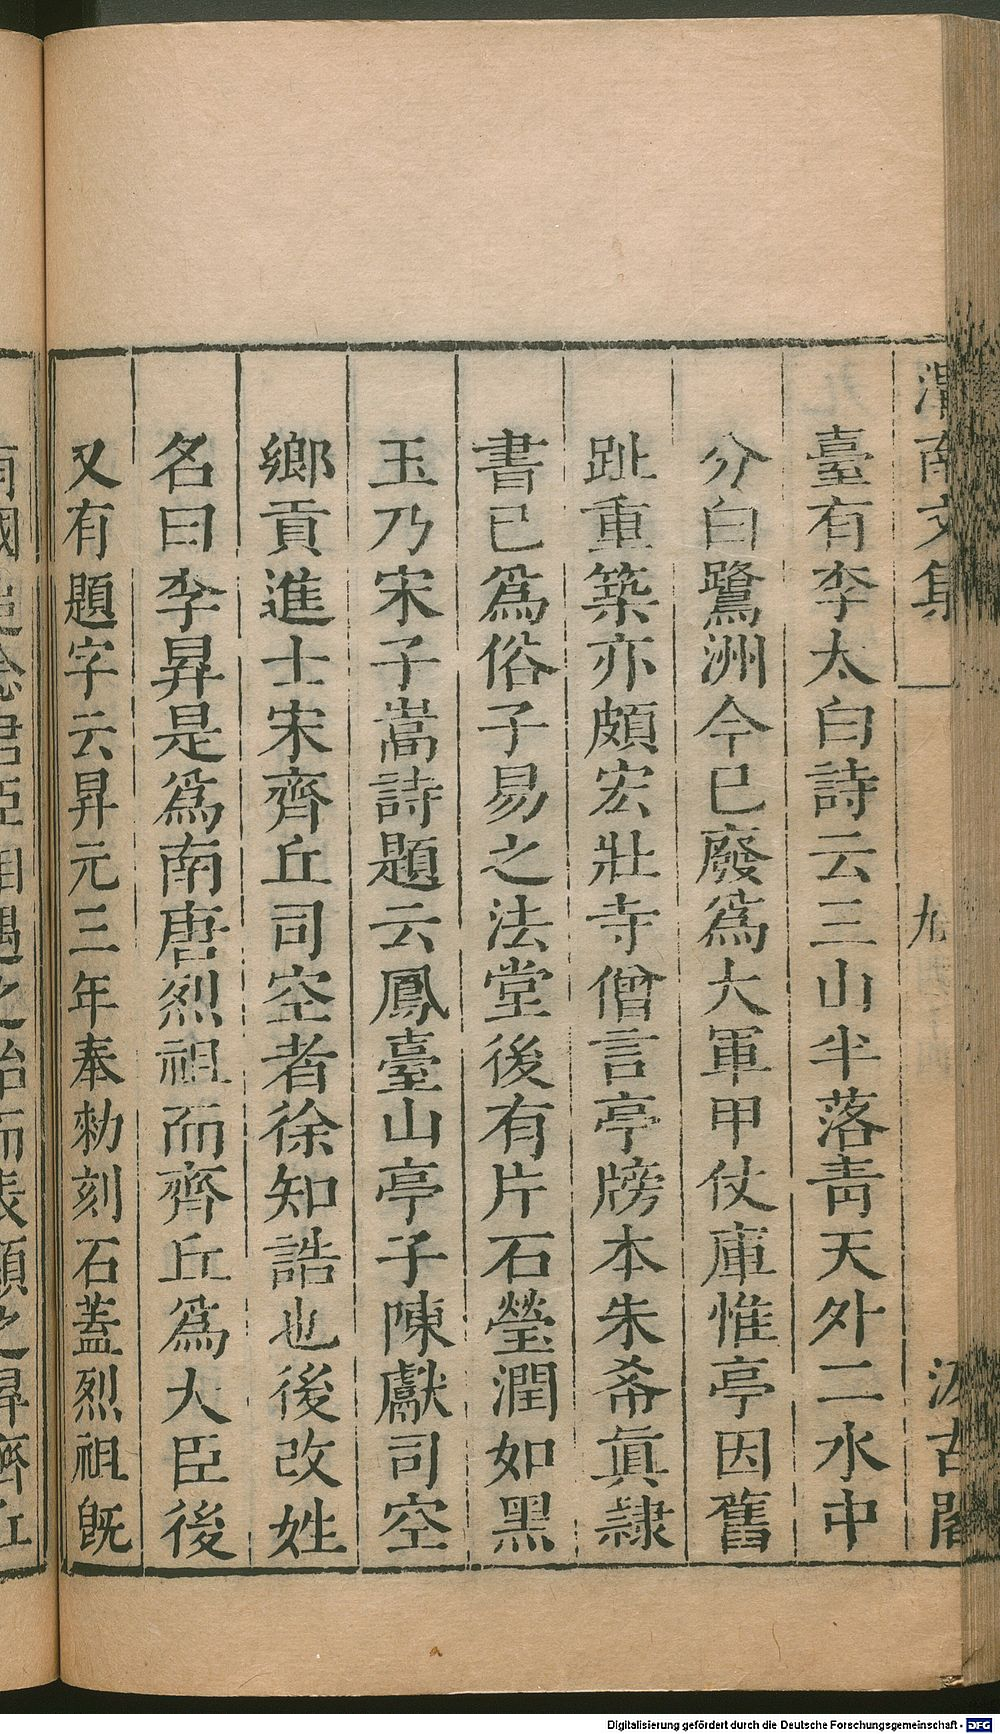 南文集
九
汲古閣
臺有李太白詩云三山半落靑天外二水中
分白鷺洲今已廢爲大軍甲仗庫惟亭因舊
趾重築亦頗宏壯寺僧言亭牓本朱希眞隷
書已爲俗子易之法堂後有片石瑩潤如黑
玉乃宋子嵩詩題云鳳臺山亭子陳獻司空
鄉貢進士宋齊丘司空者徐知誥也後改姓
名曰李昇是爲南唐烈祖而齊丘爲大臣後
又有題字云昇元三年奉勑刻石蓋烈祖旣
君臣相遇之
Digitalisierung gefördert durch die Deutsche Forschungsgemeinschaft - DFG